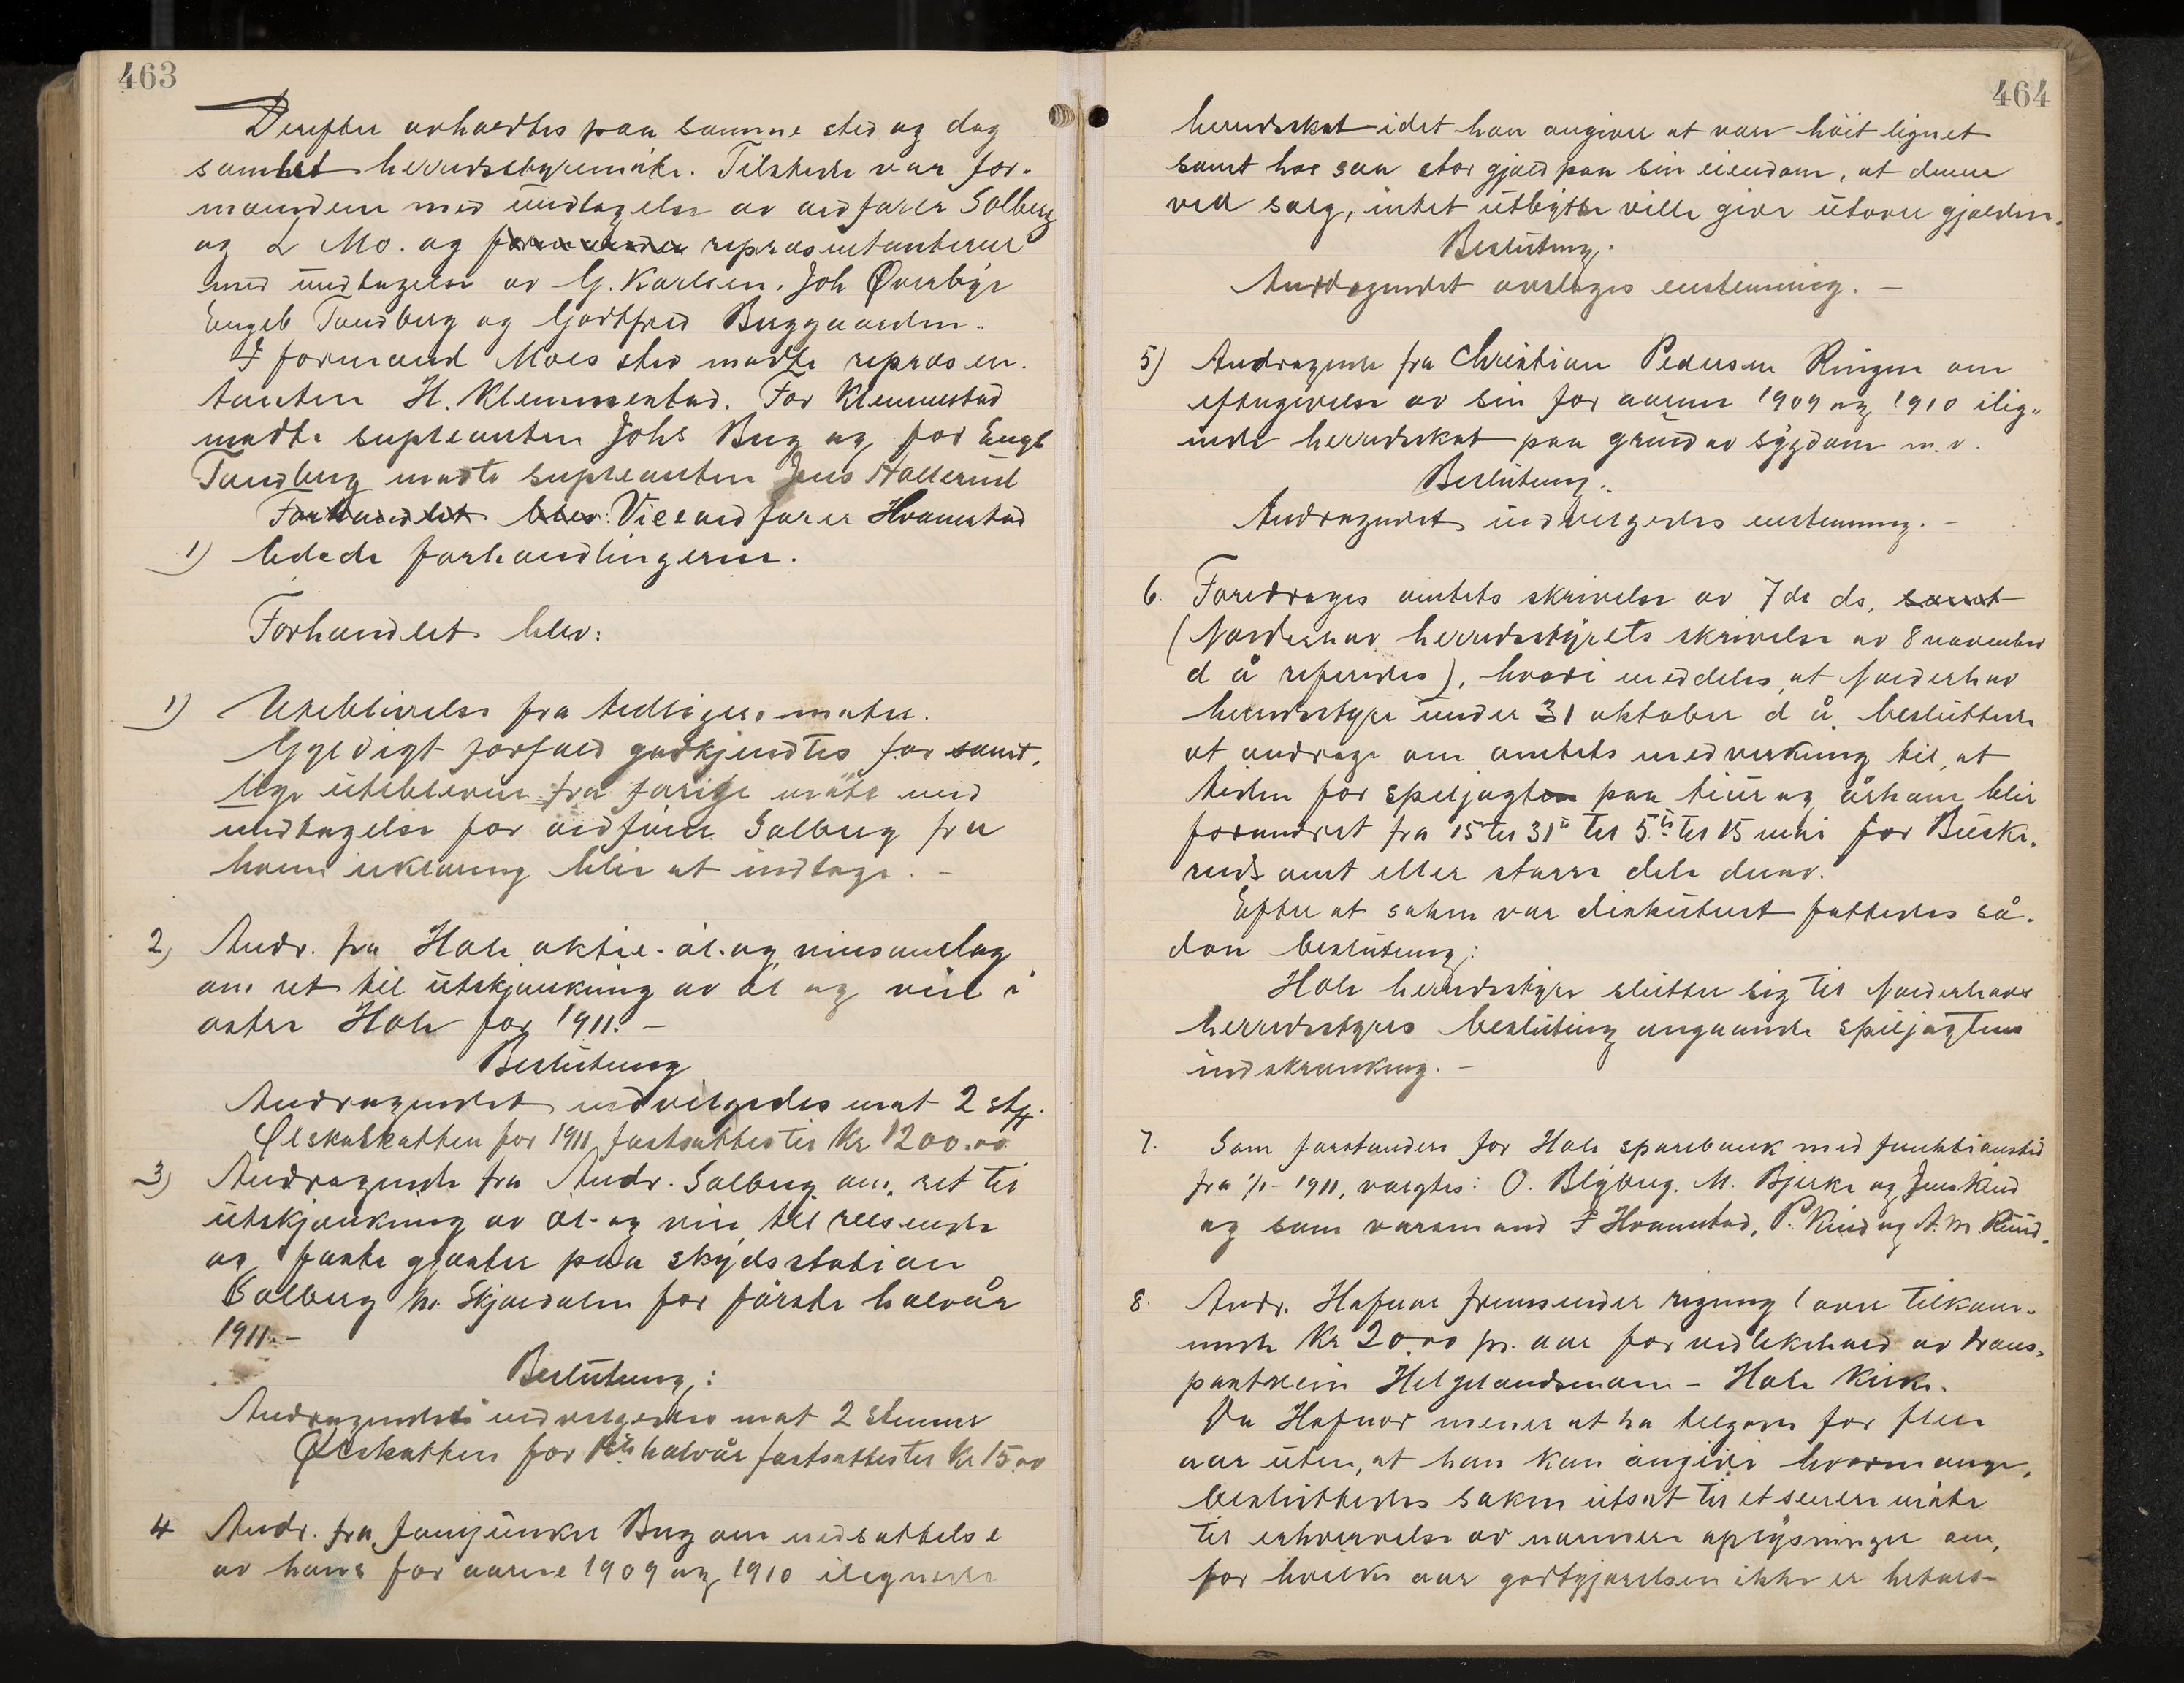 463
Derefter avholdtes paa samme sted og dag
samlet herredsstyremöte. Tilstede var for-
mændene med undtagelse av ordfører Solberg
og L Mo. og formændene repræsentanterne
med undtagelse av G. Karlsen. Joh Øverbye
Engelb Tandberg og Godtfred Byggaarden.
I formand Moes sted mødte repræsen-
tanten H. Klemmestad. For Klemmestad
mødte supleanten Johs Berg og for Engelb
Tandberg mødte supleanten Jens Hollerud
Forhandlet blev: Viceordfører Hvamstad
1) ledede forhandlingerne.
Forhandlet blev:
1) Uteblivelse fra tidligere møter.
Gyldigt forfald godkjendtes for samt-
lige uteblevne fra forige möte med
undtagelse for ordfører Solberg fra
hvem erklæring blir at indtage. -
2) Andr. fra Hole aktie- öl- og vinsamlag
om ret til utskjænkning av öl og vin i
østre Hole for 1911. -
Beslutning
Andragendet indvilgedes mot 2 st.
Ølskatskatten for 1911 fastsattes til Kr 1200.00
3) Andragende fra Andr. Solberg om ret til
utskjænkning av öl- og vin til reisende
og faste gjæster paa skydsstation
Solberg nr. Skjærdalen for förste halvår
1911. -
Beslutning:
Andragendet indvilgedes mot 2 stemmer
Ølskatten for 1ste halvår fastsattes til Kr 15.00
4 Andr. fra Jomjunker Berg om nedsættelse
av hans for aarne 1909 og 1910 ilignede
464
herredsskat idet han angiver at være höit lignet
samt har saa stor gjæld paa sin eiendom, at denne
ved salg, intet utbytte ville give utover gjælden.
Beslutning.
Andragendet avslages enstemmig. -
5) Andragende fra Christian Pedersen Ringen om
eftergivelse av sin for aarene 1909 og 1910 ilig-
nede herredsskat paa grund av sygdom m.v.
Beslutning.
Andragendet indvilgedes enstemmig. -
6. Foredrages amtets skrivelse av 7de ds. samt
(Norderhov herredsstyrets skrivelse av 8 november
d å refereredes), hvori meddeles, at Norderhov
herredsstyre under 31 oktober d å. besluttede
at andrage om amtets medvirkning til, at
tiden for speljagten paa tiur og århane blir
forandret fra 15 til 31te til 5te til 15 mai for Buske-
ruds amt eller større dele derav.
Efter at saken var diskuteret fattedes så-
dan beslutning:
Hole herredsstyre slutter sig til Norderhovs
herredsstyres beslutning angaaende spiljagtens
indskrænkning. -
7. Som forstandere for Hole sparebank med funktionstid
fra 1/1 - 1911, valgtes: O. Blyberg, M. Bjerke og Jens Rud
og som varamænd P Hvamstad, P. Rud og A. M. Ruud.
8. Andr. Hafnor fremsender regning (over tilkom-
mende Kr 20.00 pr. aar for vedlikehold av trans-
portvein Helgelandsmoen - Hole kirke.
Da Hafnor mener at ha tilgode for flere
aar uten, at han kan angive hvormange,
besluttedes saken utsat til et senere möte
til erhvervelse av nærmere oplysninger om,
for hvilke aar godtgjörelsen ikke er betalt-